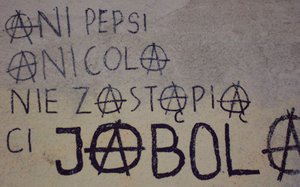 ANI PEPSI
ANI COLA
NIE ZASTĄPIĄ
CI JABOLA